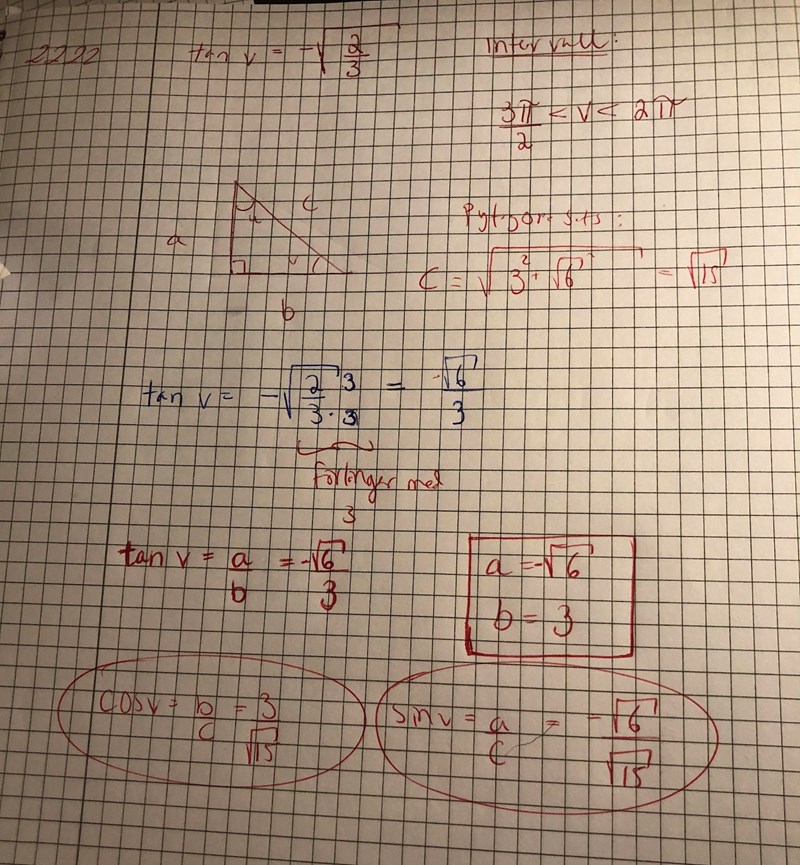 2222 tan v = -√(2/3) Intervall:
3π/2 < v < 2π
a u c v b
c = √(3² + √6²) = √15
tan v = -√(2·3/3·3) = -√6/3
Forlenger med
3
tan v = a/b = -√6/3
a = -√6
b = 3
cos v = b/c = 3/√15
sin v = a/c = -√6/√15